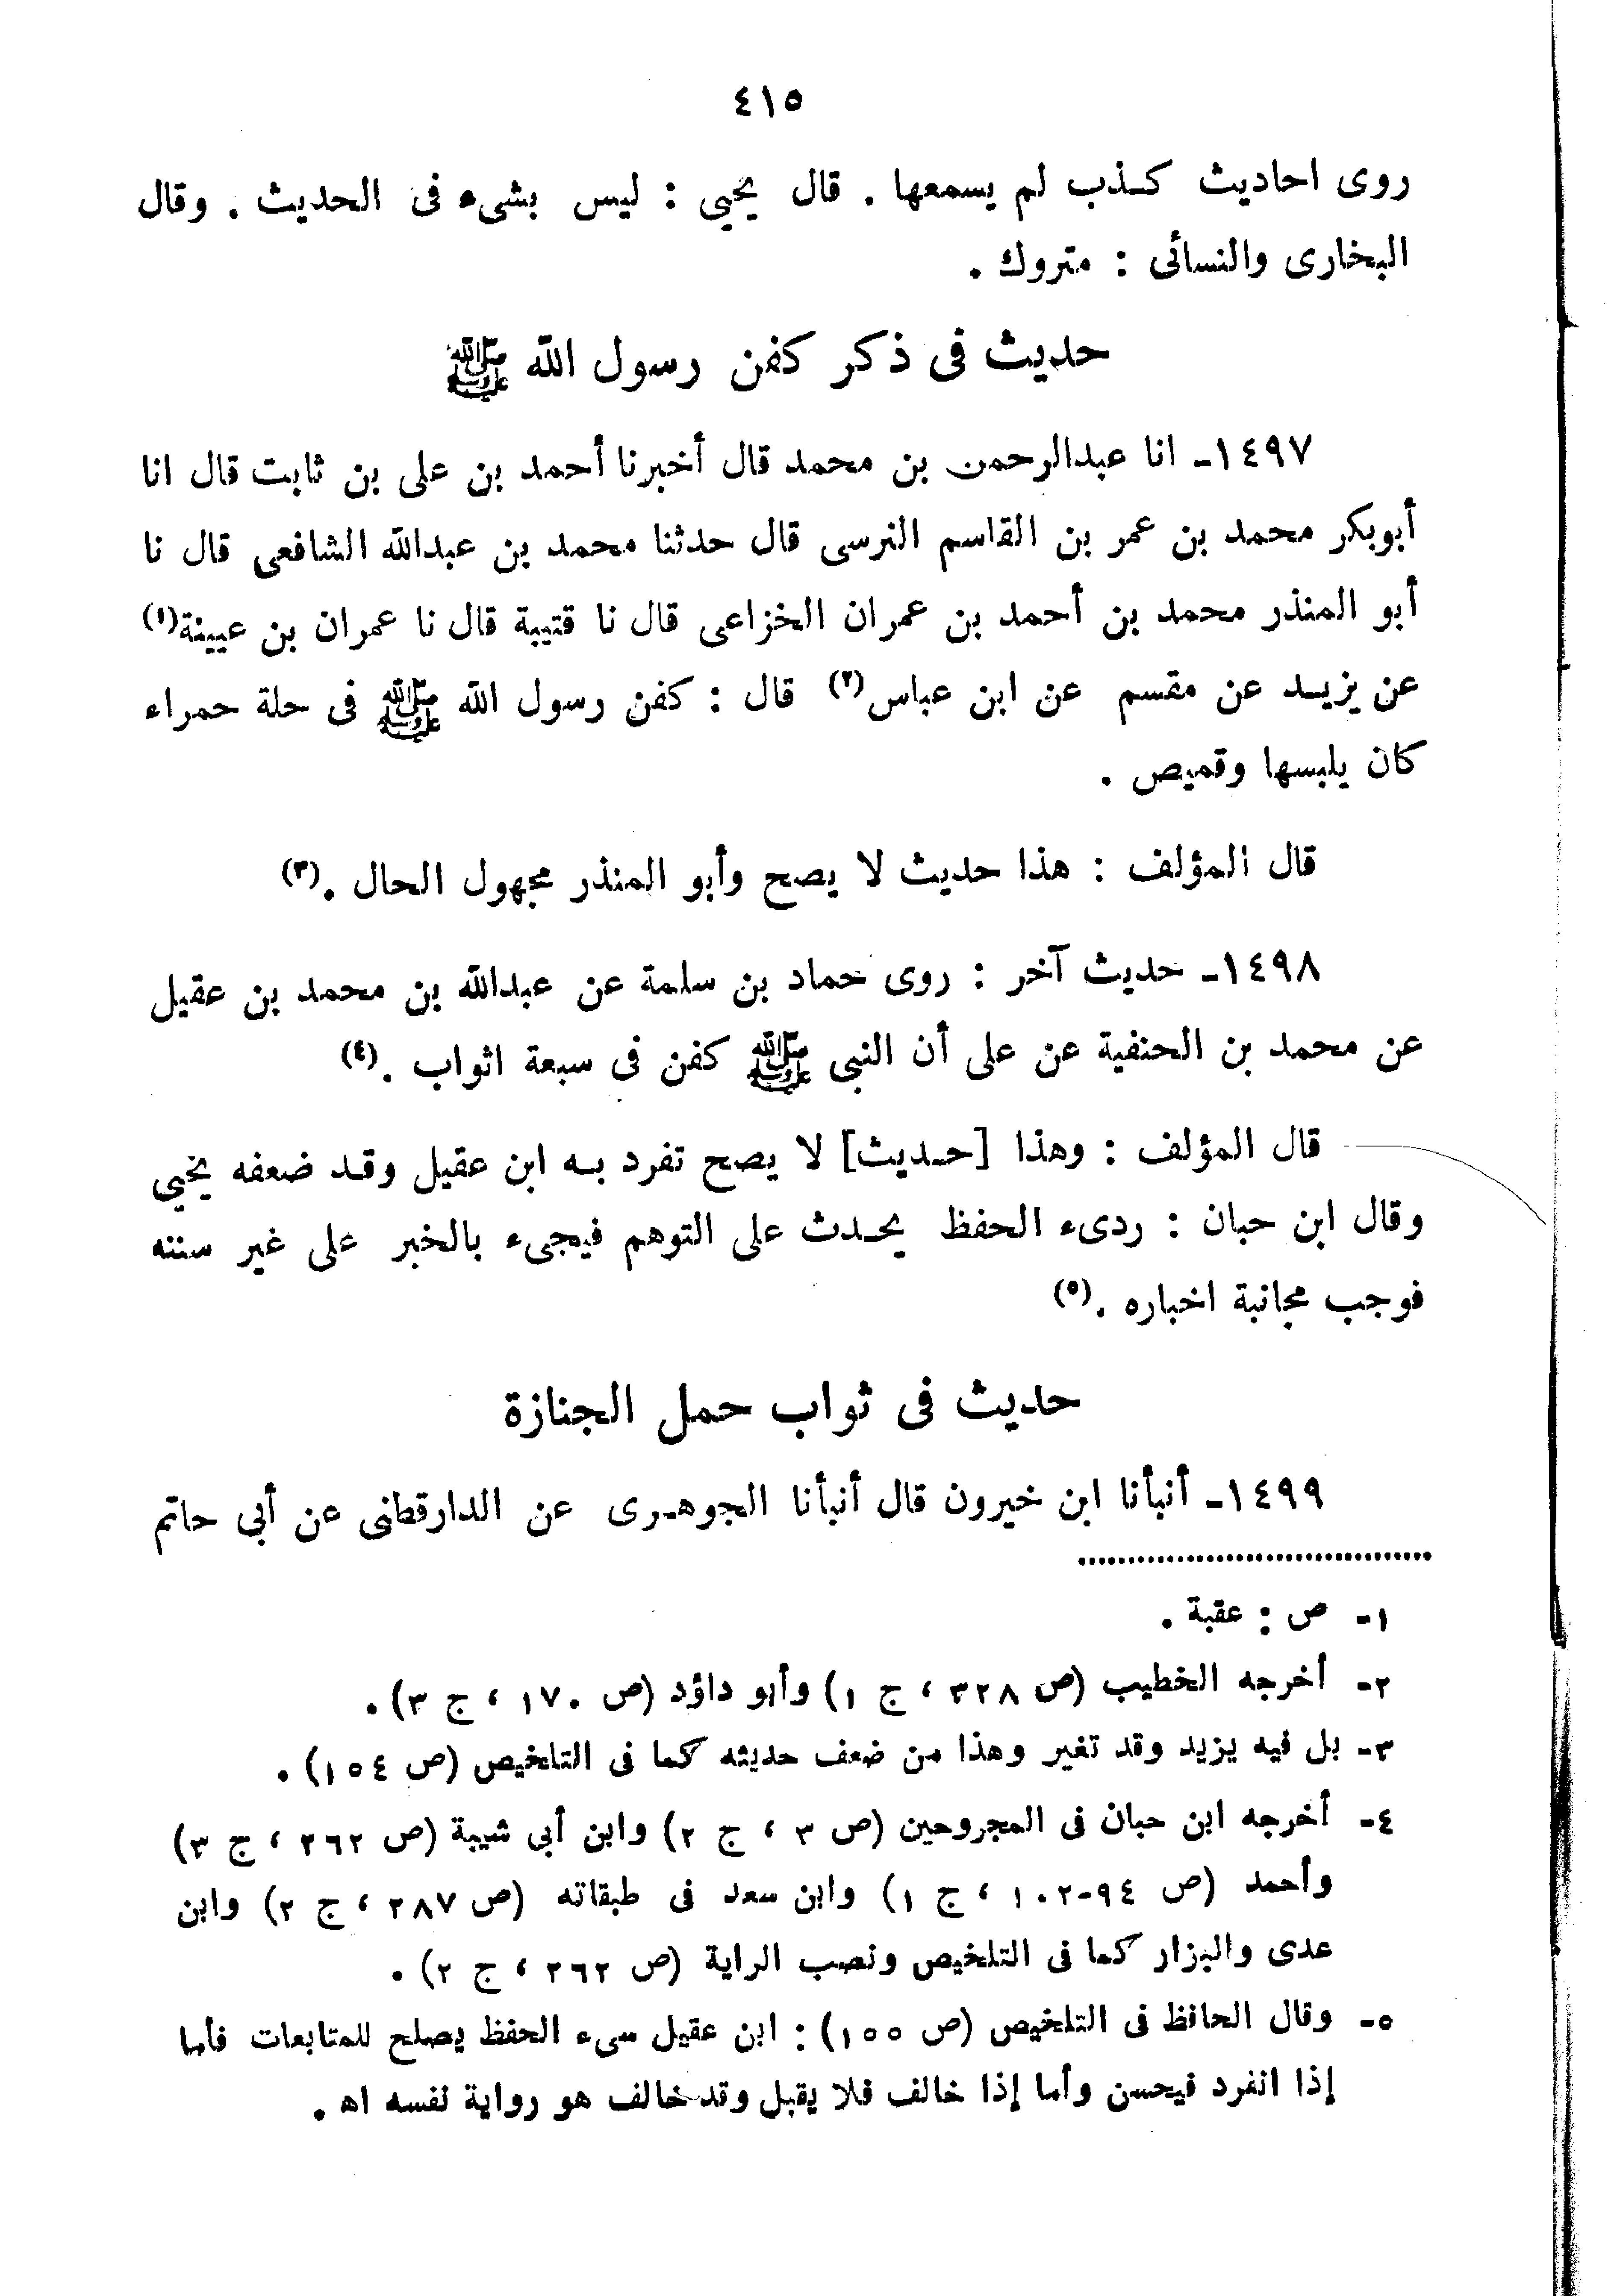 ٤١٥
روى احاديث كذب لم يسمعها . قال يحيى : ليس بشىء فى الحديث . وقال
البخارى والنسائى : متروك .
حديث فى ذكر كفن رسول الله ﷺ
١٤٩٧- انا عبدالرحمن بن محمد قال أخبرنا أحمد بن على بن ثابت قال انا
أبوبكر محمد بن عمر بن القاسم النرسى قال حدثنا محمد بن عبدالله الشافعى قال نا
أبو المنذر محمد بن أحمد بن عمران الخزاعى قال نا قتيبة قال نا عمران بن عيينة(١)
عن يزيد عن مقسم عن ابن عباس(٢) قال : كفن رسول الله ﷺ فى حلة حمراء
كان يلبسها وقميص .
قال المؤلف : هذا حديث لا يصح وأبو المنذر مجهول الحال .(٣)
١٤٩٨- حديث آخر : روى حماد بن سلمة عن عبدالله بن محمد بن عقيل
عن محمد بن الحنفية عن على أن النبى ﷺ كفن فى سبعة اثواب .(٤)
قال المؤلف : وهذا [حديث] لا يصح تفرد به ابن عقيل وقد ضعفه يحيى
وقال ابن حبان : ردىء الحفظ يحدث على التوهم فيجىء بالخبر على غير سننه
فوجب مجانبة اخباره .(٥)
حديث فى ثواب حمل الجنازة
١٤٩٩- أنبأنا ابن خيرون قال أنبأنا الجوهرى عن الدارقطنى عن أبى حاتم
١- ص : عقبة .
٢- أخرجه الخطيب (ص ٣٢٨ ، ج ١) وأبو داؤد (ص ١٧٠ ، ج ٣) .
٣- بل فيه يزيد وقد تغير وهذا من ضعف حديثه كما فى التلخيص (ص ١٥٤) .
٤- أخرجه ابن حبان فى المجروحين (ص ٣ ، ج ٢) وابن أبى شيبة (ص ٢٦٢ ، ج ٣)
وأحمد (ص ٩٤-١٠٢ ، ج ١) وابن سعد فى طبقاته (ص ٢٨٧ ، ج ٢) وابن
عدى والبزار كما فى التلخيص ونصب الراية (ص ٢٦٢ ، ج ٢) .
٥- وقال الحافظ فى التلخيص (ص ١٥٥) : ابن عقيل سىء الحفظ يصلح للمتابعات فأما
إذا انفرد فيحسن وأما إذا خالف فلا يقبل وقد خالف هو رواية نفسه اه .